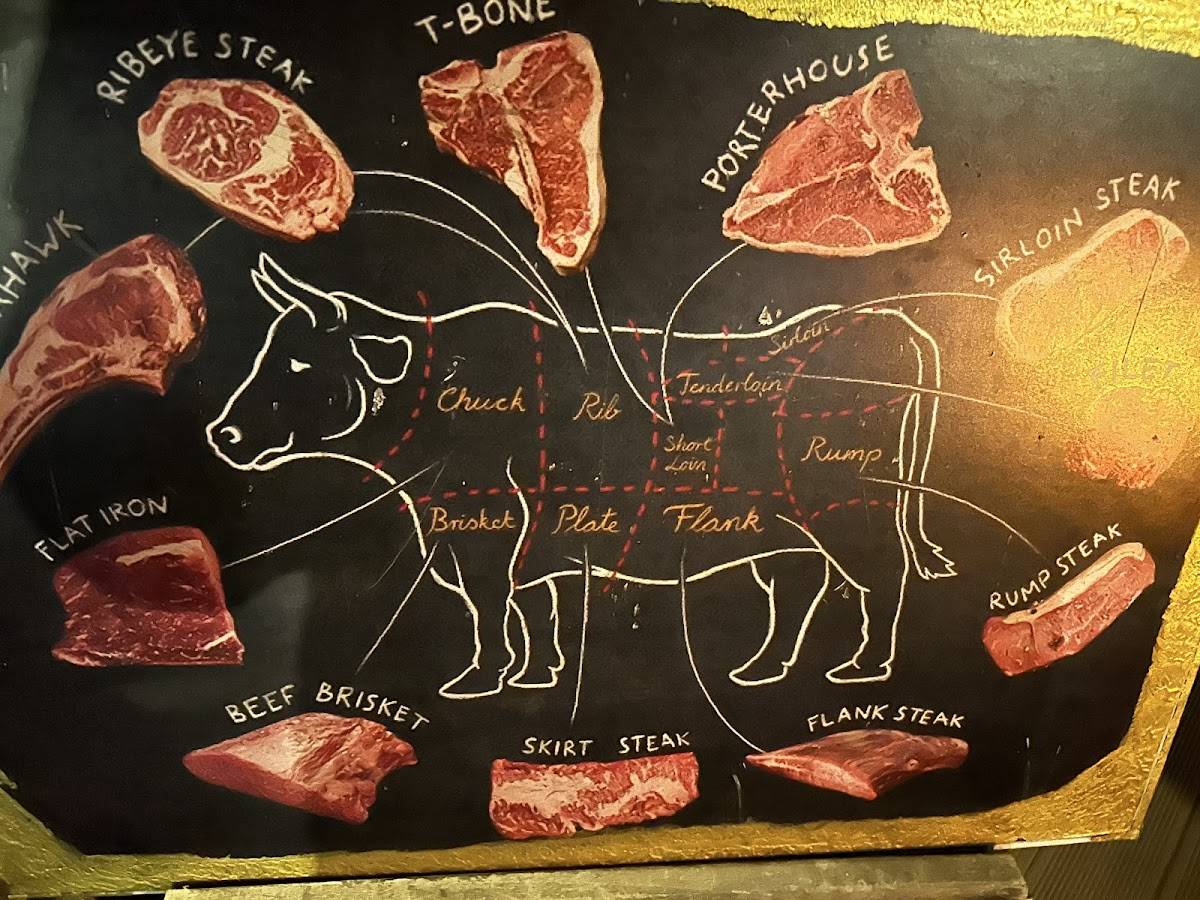 T-BONE
RIBEYE STEAK
PORTERHOUSE
SIRLOIN STEAK
Sirloin
Tenderloin
Chuck
Rib
Short
Loin
Rump
Brisket
Plate
Flank
FLAT IRON
RUMP STEAK
BEEF BRISKET
SKIRT STEAK
FLANK STEAK